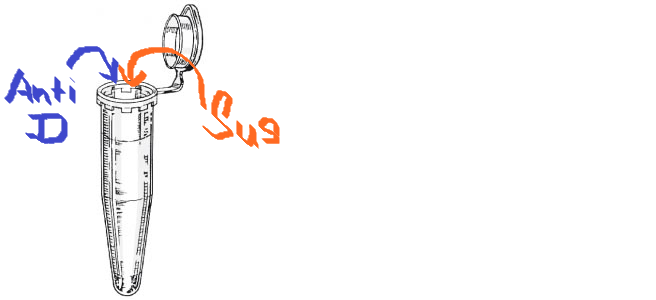 Anti
D
Sus